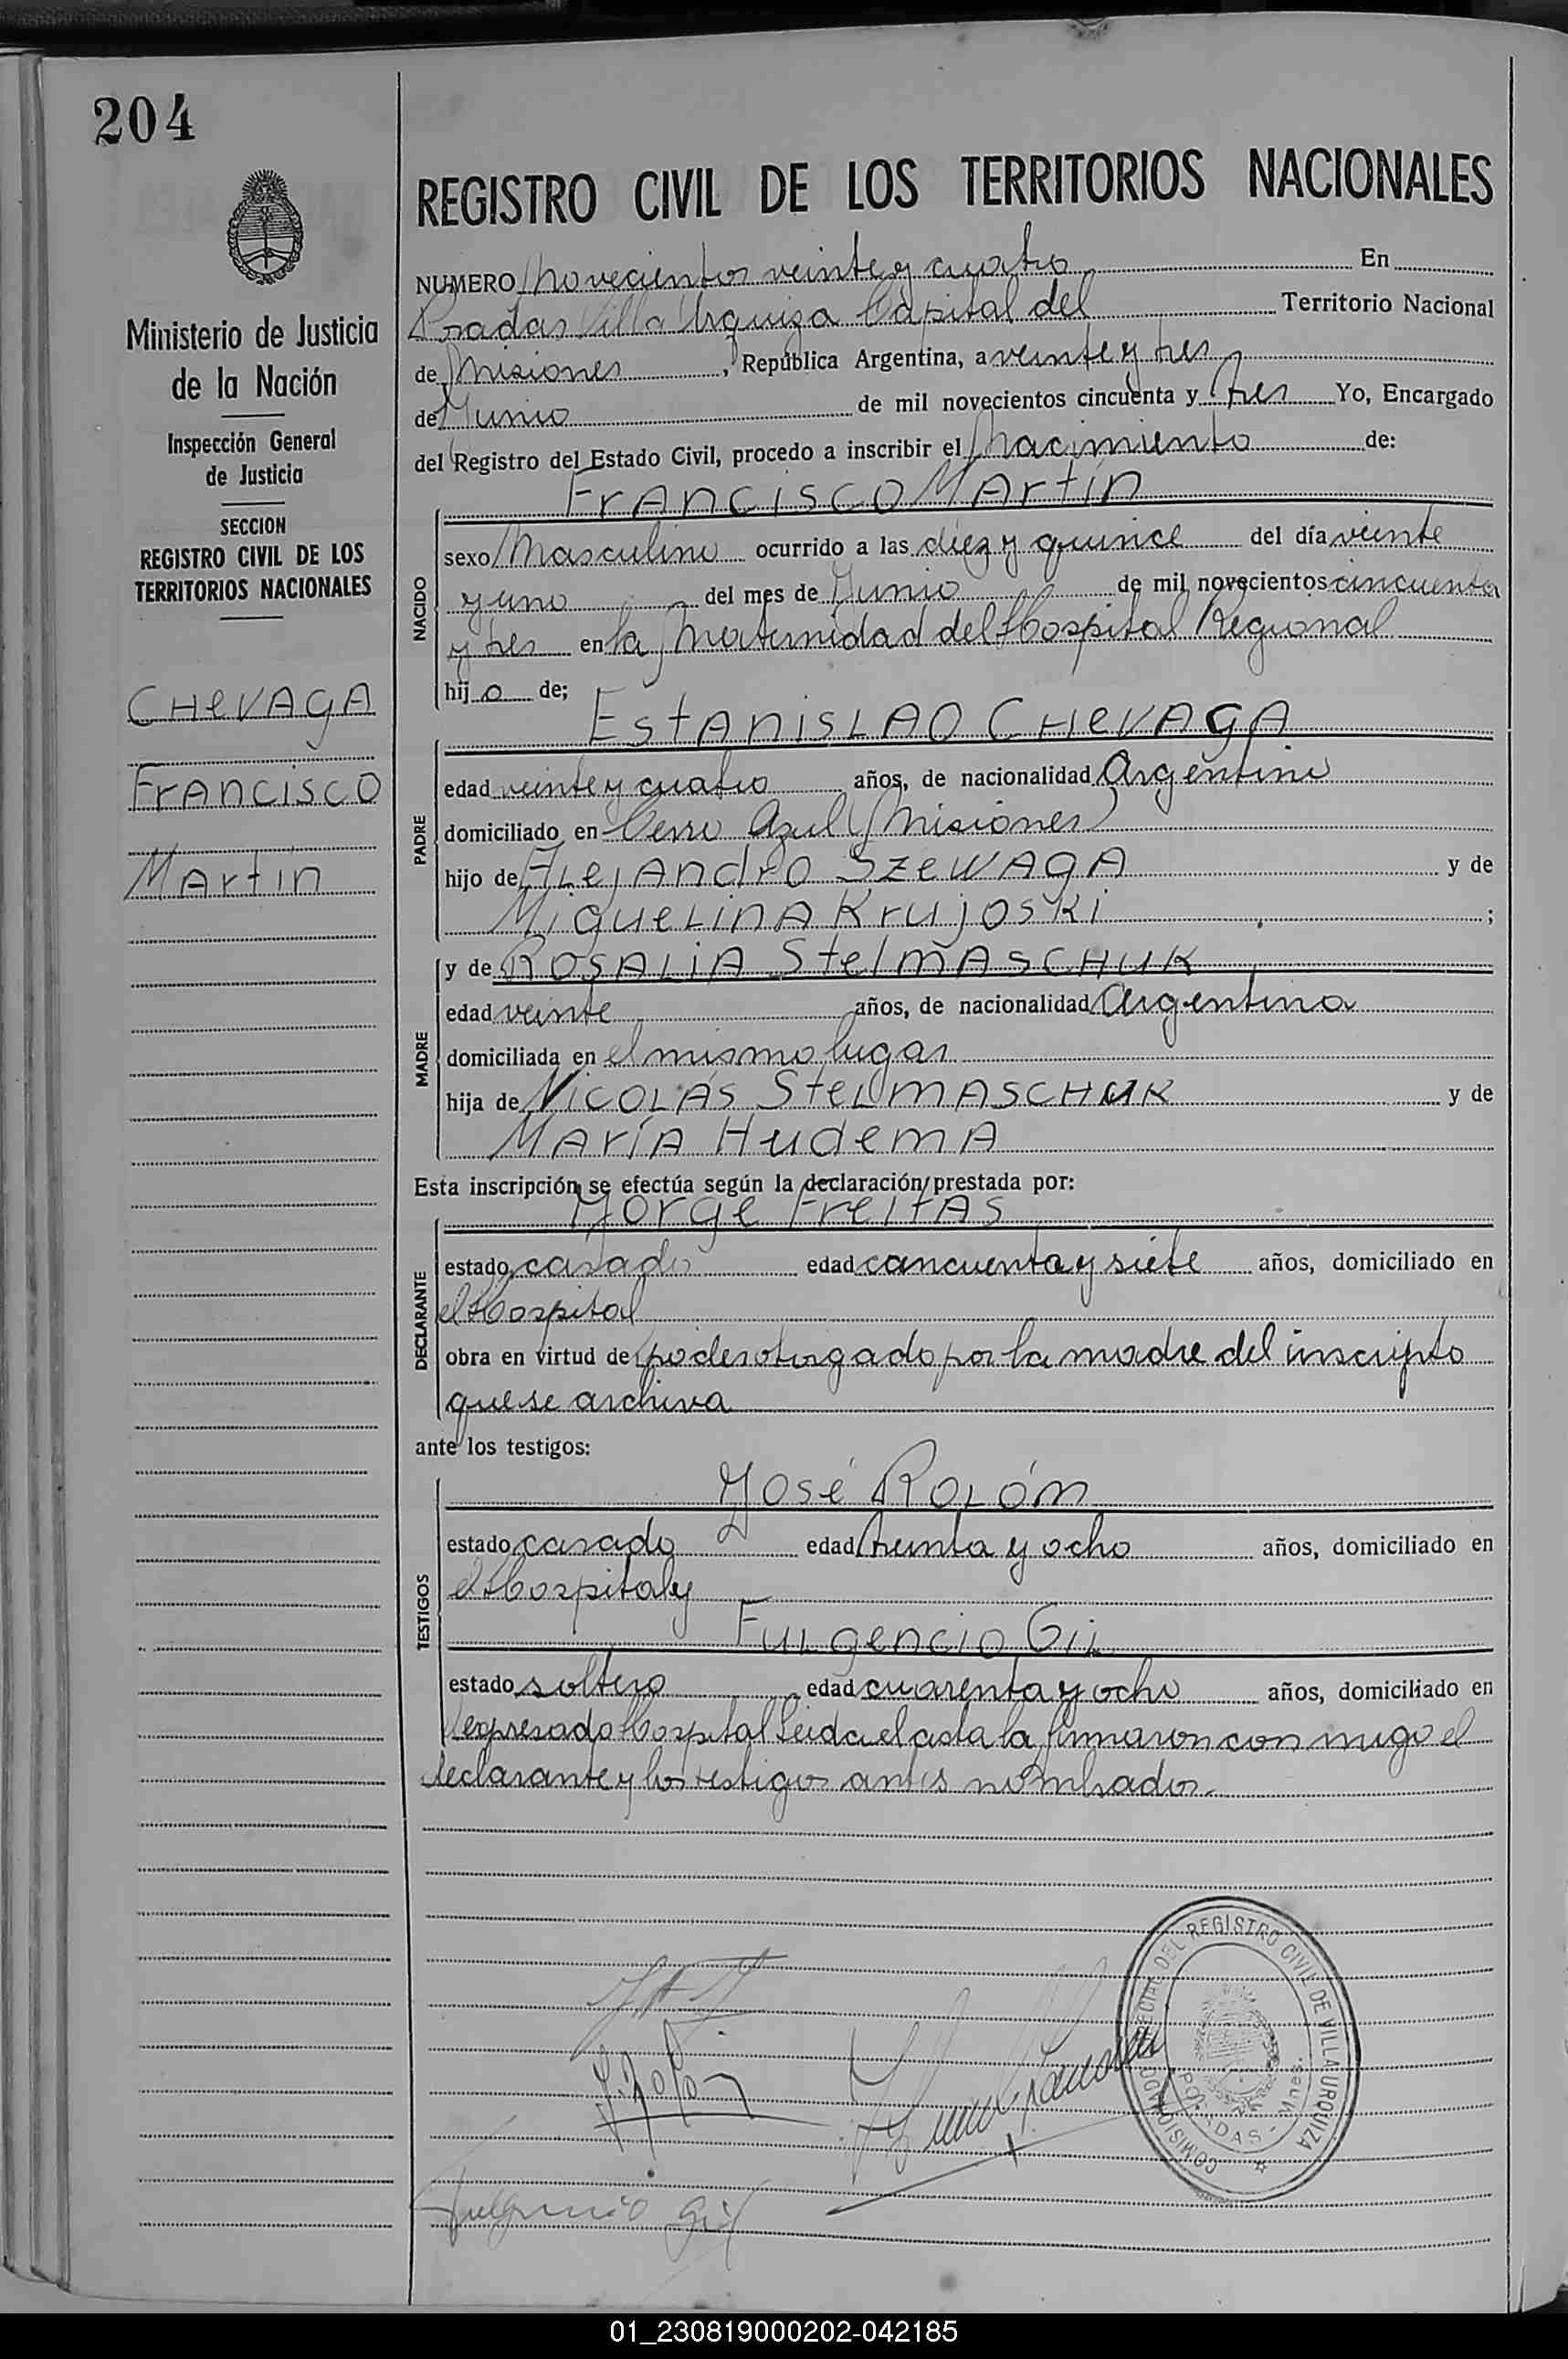 204
REGISTRO CIVIL DE LOS TERRITORIOS NACIONALES
NUMERO novecientos veinte y cuatro En
Posadas Villa Urquiza Capital del Territorio Nacional
de Misiones, República Argentina, a veinte y tres
de Junio de mil novecientos cincuenta y tres Yo, Encargado
del Registro del Estado Civil, procedo a inscribir el nacimiento de:
Francisco Martín
NACIDO
sexo Masculino ocurrido a las diez y quince del día veinte
y uno del mes de Junio de mil novecientos cincuenta
y tres en la Maternidad del Hospital Regional
hijo de;
Estanislao Chevaga
PADRE
edad veinte y cuatro años, de nacionalidad Argentino
domiciliado en Cerro Azul (Misiones)
hijo de Alejandro Szewaga y de
Miguelina Krujoski ;
y de Rosalia Stelmaschuk
MADRE
edad veinte años, de nacionalidad Argentina
domiciliada en el mismo lugar
hija de Nicolás Stelmaschuk y de
María Hudema
Esta inscripción se efectúa según la declaración prestada por:
Jorge Freitas
DECLARANTE
estado casado edad cancuenta y siete años, domiciliado en
el Hospital
obra en virtud de poder otorgado por la madre del inscripto
que se archiva
ante los testigos:
José Rolón
TESTIGOS
estado casado edad treinta y ocho años, domiciliado en
el Hospital y
Fulgencio Gil
estado soltero edad cuarenta y ocho años, domiciliado en
expresado Hospital Leida el acta la firmaron con migo el
declarante y los testigos antes nombrados.
Ministerio de Justicia
de la Nación
Inspección General
de Justicia
SECCION
REGISTRO CIVIL DE LOS
TERRITORIOS NACIONALES
Chevaga
Francisco
Martín
J. Rolón
Fulgencio Gil
DEL REGISTRO CIVIL DE VILLA URQUIZA
POSADAS - Mnes.
01_230819000202-042185